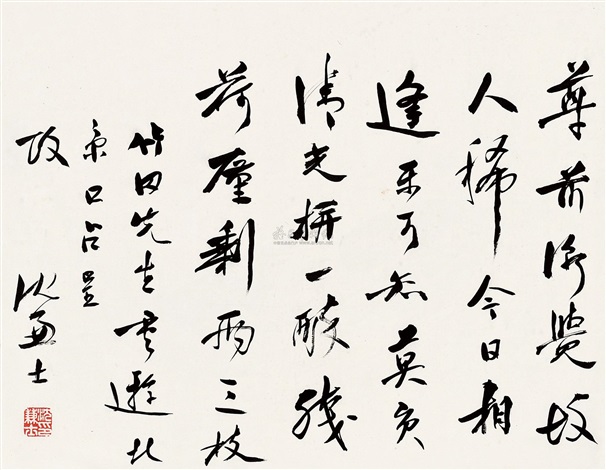 尊前漸覺故
人稀今日相
逢樂可知莫負
清光拼一醉殘
荷廑剩兩三枝
竹田先生重遊北
京口占呈
政 沈兼士